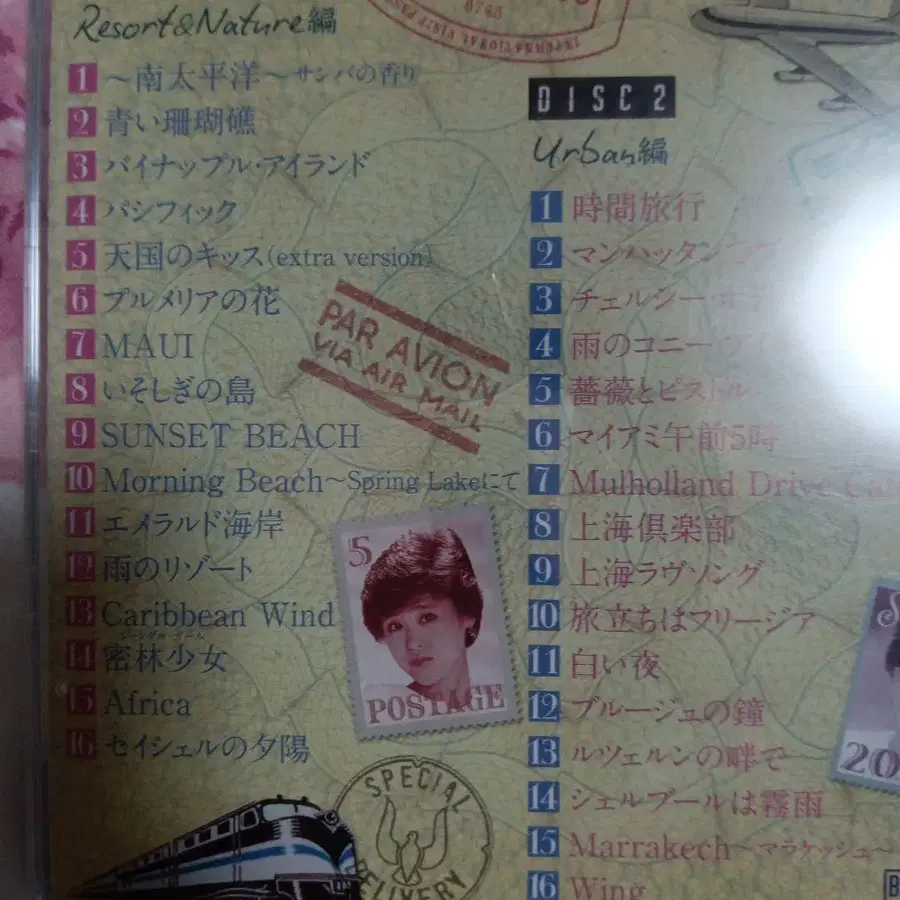 Resort&Nature編
1 ～南太平洋～サンバの香り
2 青い珊瑚礁
3 パイナップル・アイランド
4 パシフィック
5 天国のキッス(extra version)
6 プルメリアの花
7 MAUI
8 いそしぎの島
9 SUNSET BEACH
10 Morning Beach～Spring Lakeにて
11 エメラルド海岸
12 雨のリゾート
13 Caribbean Wind
ジャングル ガール
14 密林少女
15 Africa
16 セイシェルの夕陽
DISC 2
Urban編
1 時間旅行
2 マンハッタン
3 チェルシー・
4 雨のコニー・アイ
5 薔薇とピストル
6 マイアミ午前5時
7 Mulholland Drive
8 上海倶楽部
9 上海ラヴソング
10 旅立ちはフリージア
11 白い夜
12 ブルージュの鐘
13 ルツェルンの畔で
14 シェルブールは霧雨
15 Marrakech～マラケッシュ～
16 Wing
PAR AVION
VIA AIR MAIL
5
POSTAGE
SPECIAL
DELIVERY
20